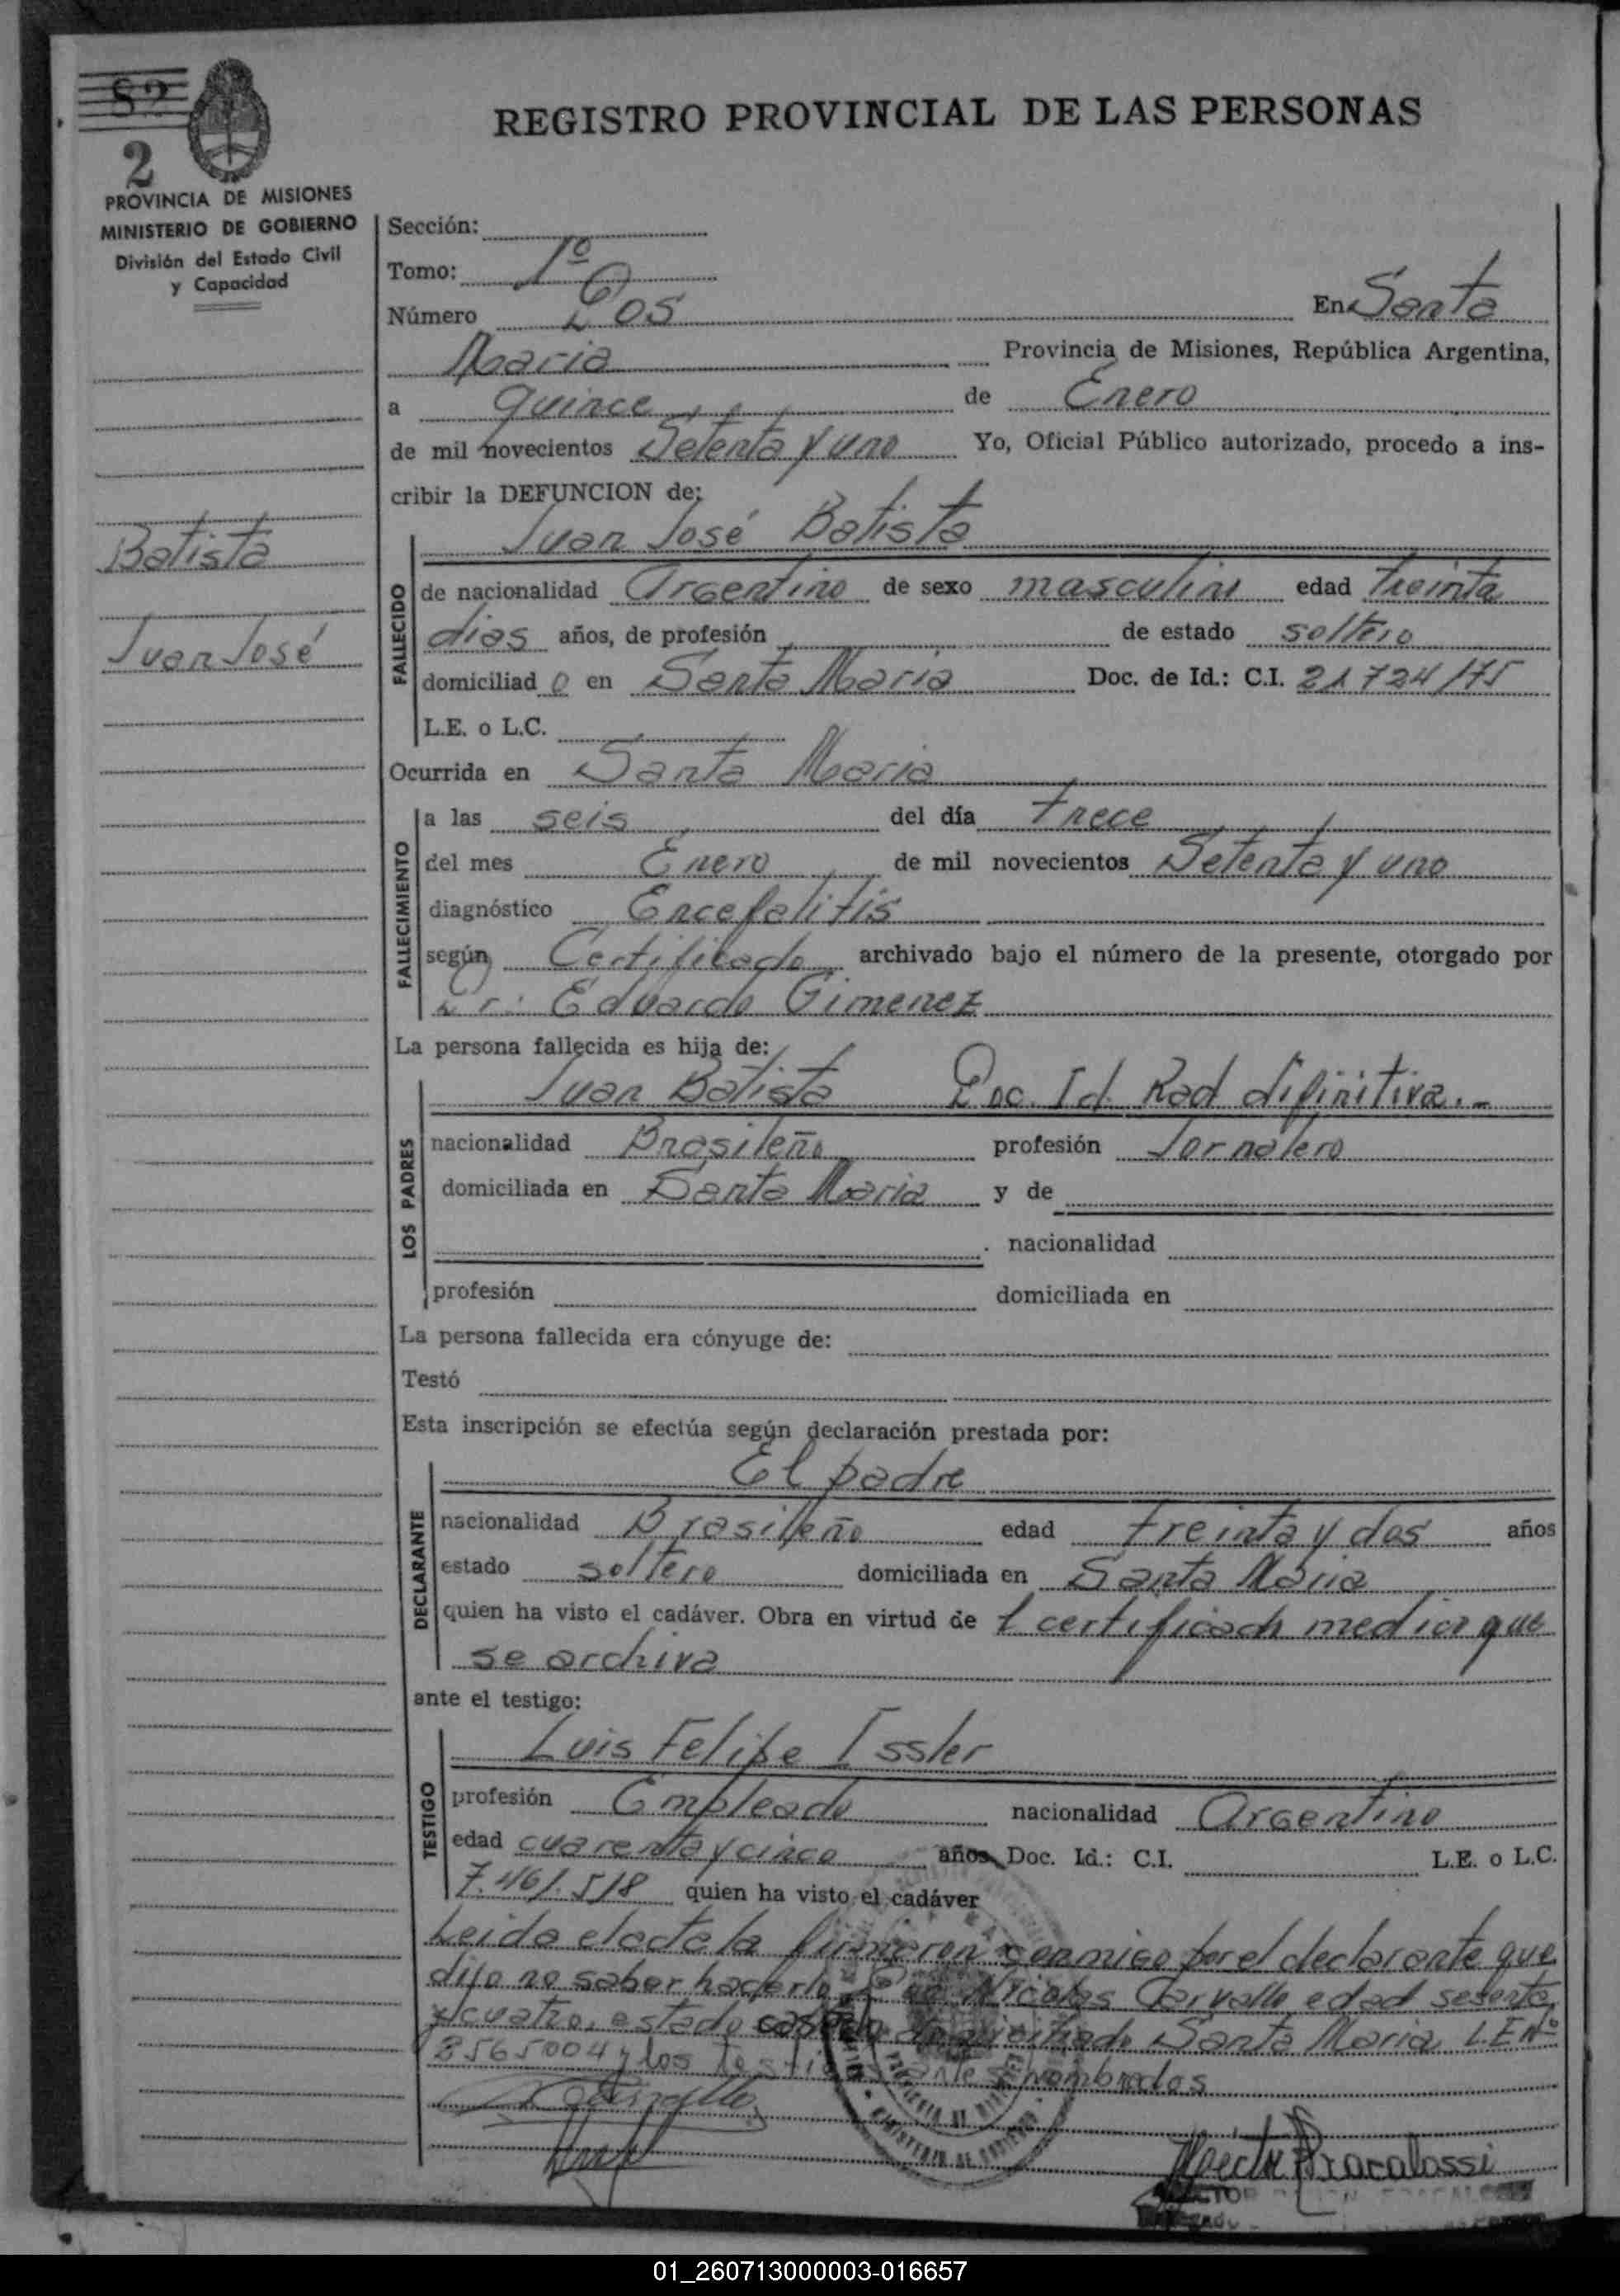 82
2
REGISTRO PROVINCIAL DE LAS PERSONAS
PROVINCIA DE MISIONES
MINISTERIO DE GOBIERNO
División del Estado Civil
y Capacidad
Batista
Juan José
Sección:
Tomo: 1º
Número Dos En Santa
Maria Provincia de Misiones, República Argentina,
a quince de Enero
de mil novecientos Setenta y uno Yo, Oficial Público autorizado, procedo a ins-
cribir la DEFUNCION de:
Juan José Batista
FALLECIDO
de nacionalidad Argentino de sexo masculino edad treinta
dias años, de profesión de estado soltero
domiciliad o en Santa Maria Doc. de Id.: C.I. 21724/75
L.E. o L.C.
Ocurrida en Santa Maria
FALLECIMIENTO
a las seis del día trece
del mes Enero de mil novecientos Setenta y uno
diagnóstico Encefalitis
según Certificado archivado bajo el número de la presente, otorgado por
Dr: Eduardo Gimenez
La persona fallecida es hija de:
LOS PADRES
Juan Batista Doc. Id. Rad difinitiva.-
nacionalidad Brasileño profesión Jornalero
domiciliada en Santa Maria y de
nacionalidad
profesión domiciliada en
La persona fallecida era cónyuge de:
Testó
Esta inscripción se efectúa según declaración prestada por:
DECLARANTE
El padre
nacionalidad Brasilleño edad treinta y dos años
estado soltero domiciliada en Santa Maria
quien ha visto el cadáver. Obra en virtud de l certificado medico que
se archiva
ante el testigo:
TESTIGO
Luis Felipe Issler
profesión Empleado nacionalidad Argentino
edad cuarenta y cinco años Doc. Id.: C.I. L.E. o L.C.
7.461.518 quien ha visto el cadáver
Leida el acta la firmaron conmigo por el declarante que
dijo no saber hacerlo Nicolas Carvallo, edad sesenta
y cuatro, estado casado domiciliado Santa Maria L.E Nº
3565004 y los testigos antes nombrados
Hector Fracalossi
01_260713000003-016657